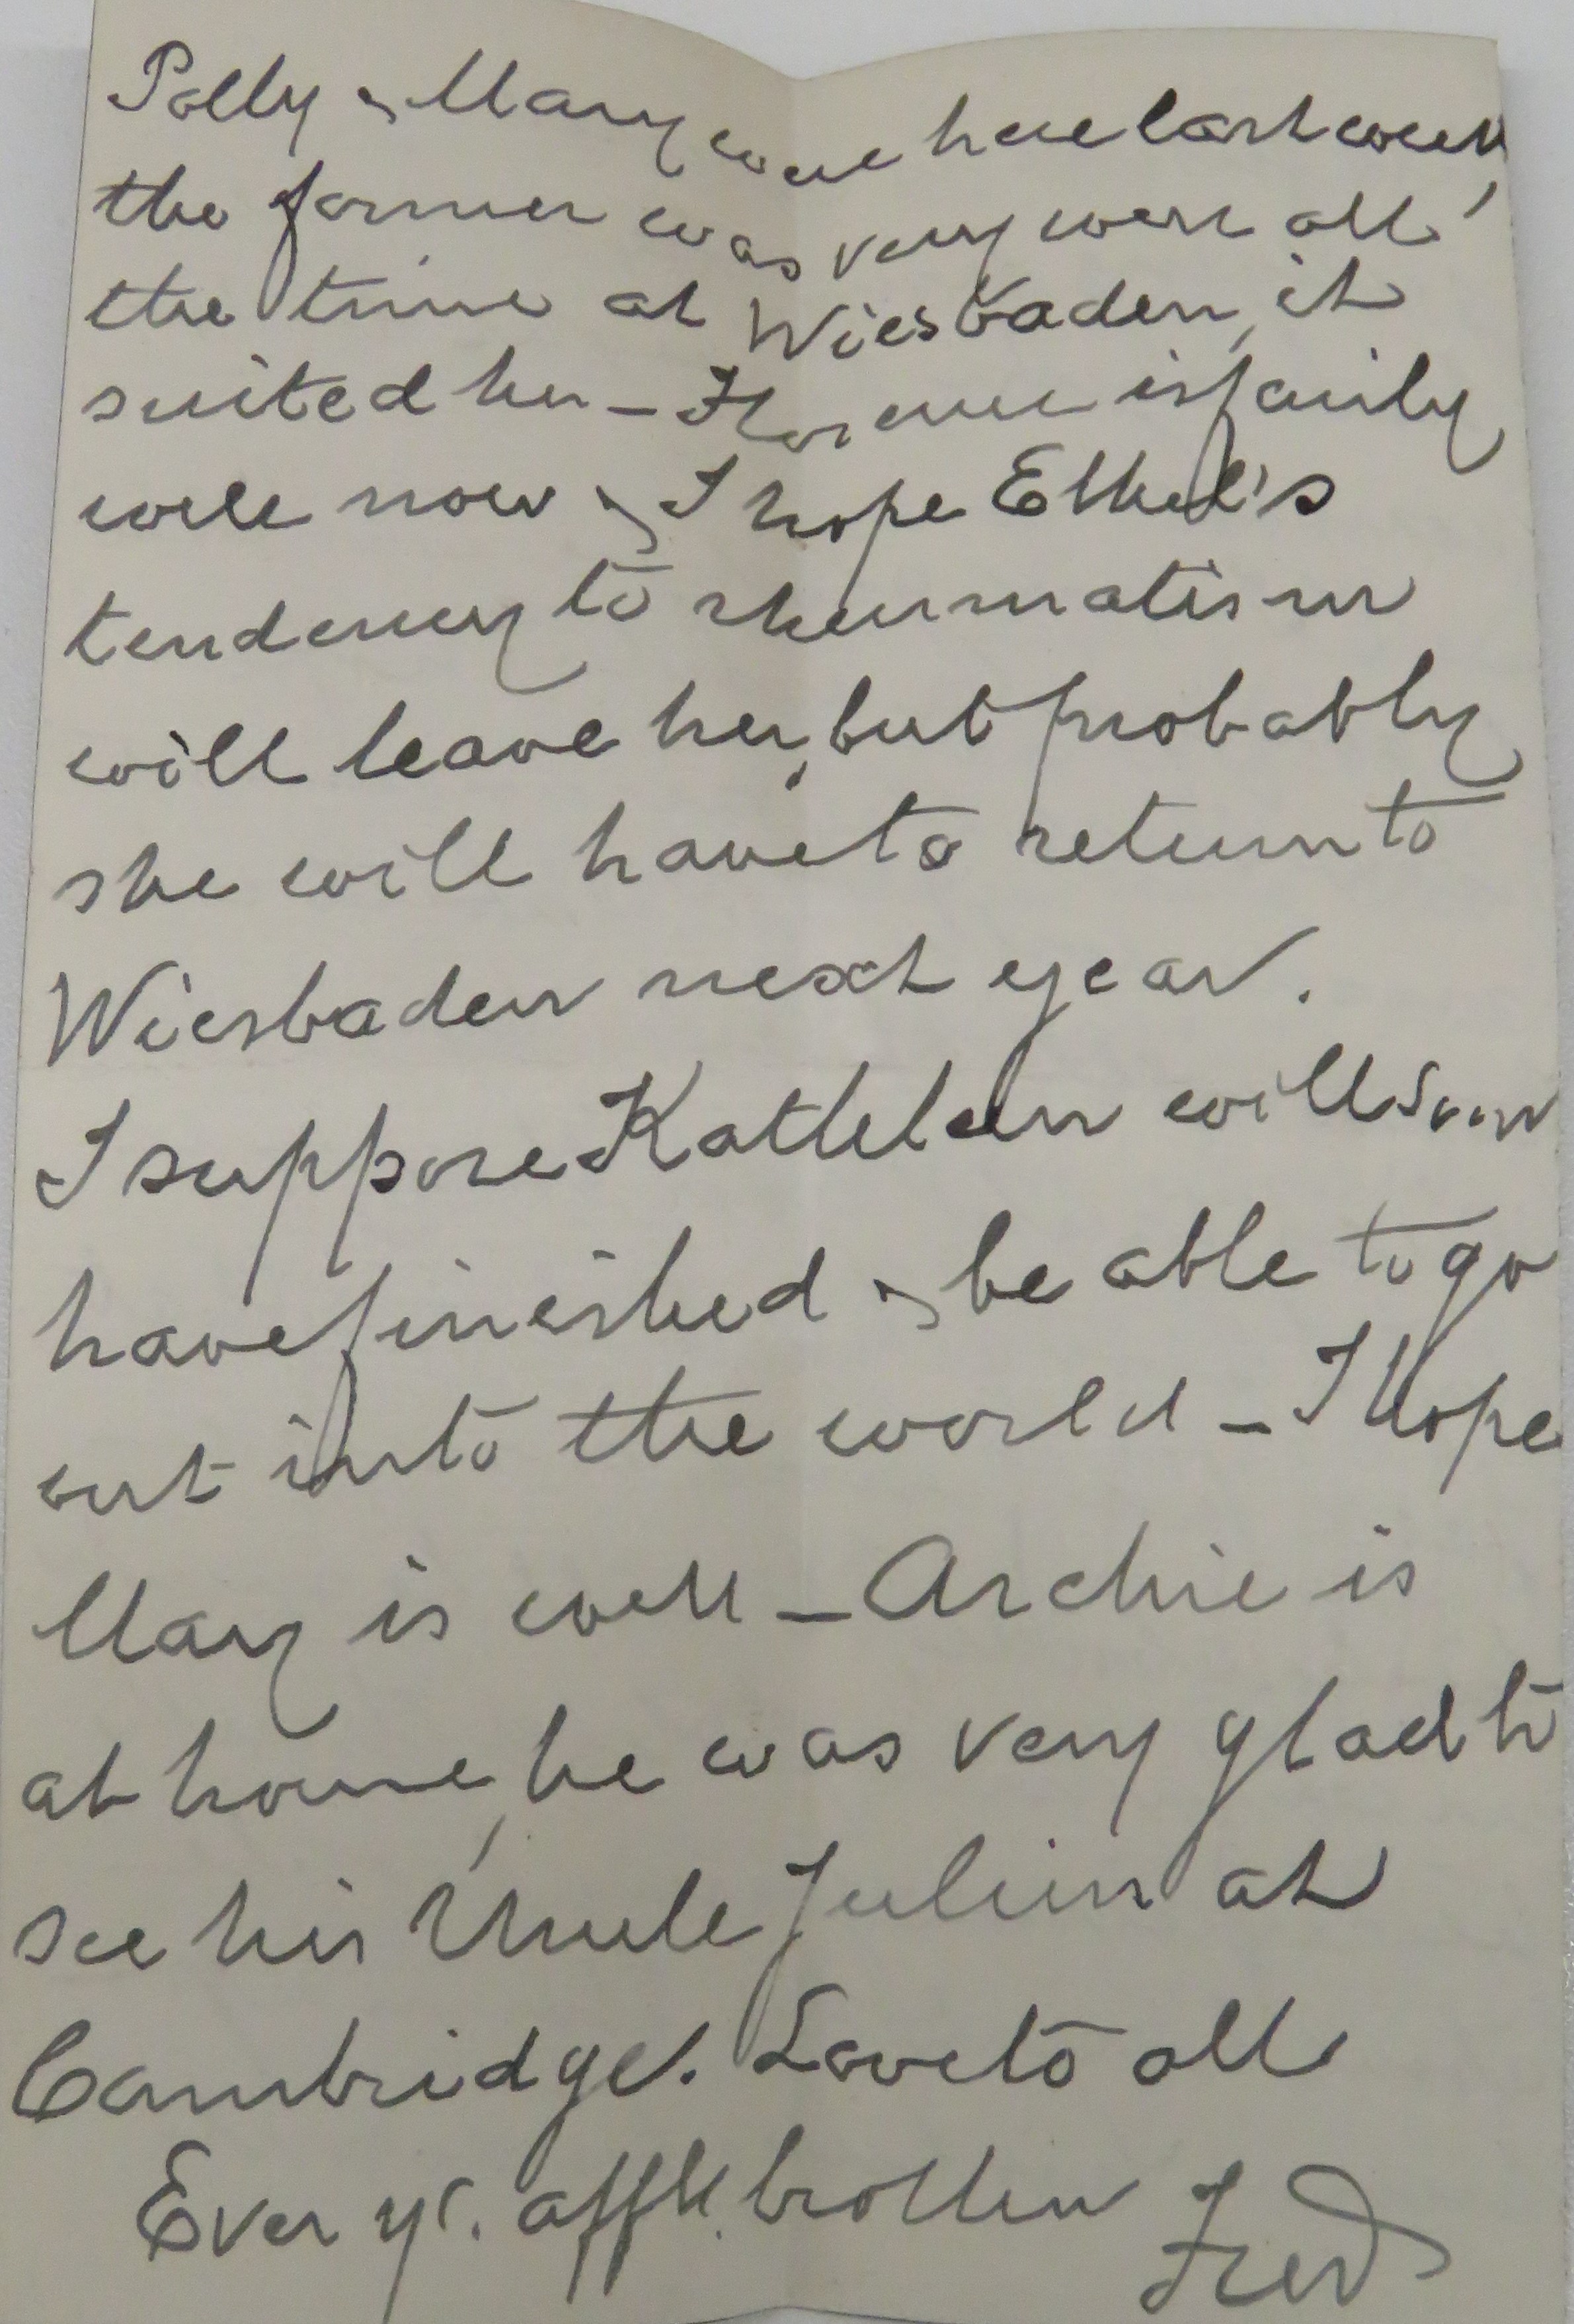 Polly & Mary were here last week,
the former was very well all
the time at Wiesbaden, it
suited her – Florence is fairly
well now & I hope Ethel's
tendency to rheumatism
will leave her, but probably
she will have to return to
Wiesbaden next year.
I suppose Kathleen will soon
have finished & be able to go
out into the world – I hope
Mary is well – Archie is
at home, he was very glad to
see his Uncle Julian at
Cambridge. Love to all
Ever yr. affte. brother Fred